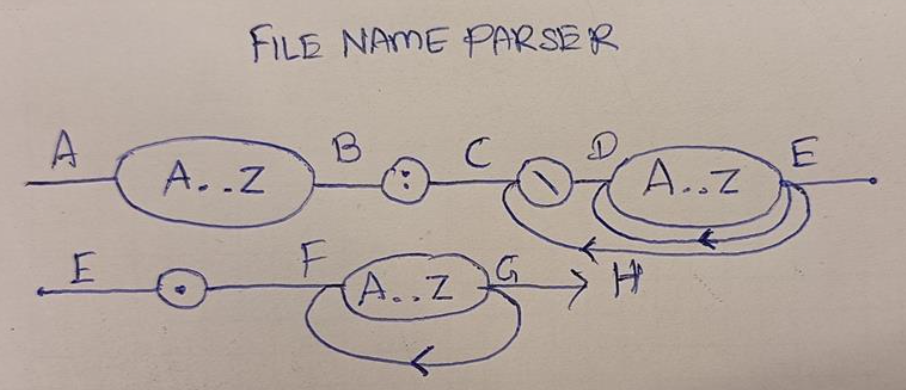 FILE NAME PARSER
A A..Z B : C \ D A..Z E
E . F A..Z G H